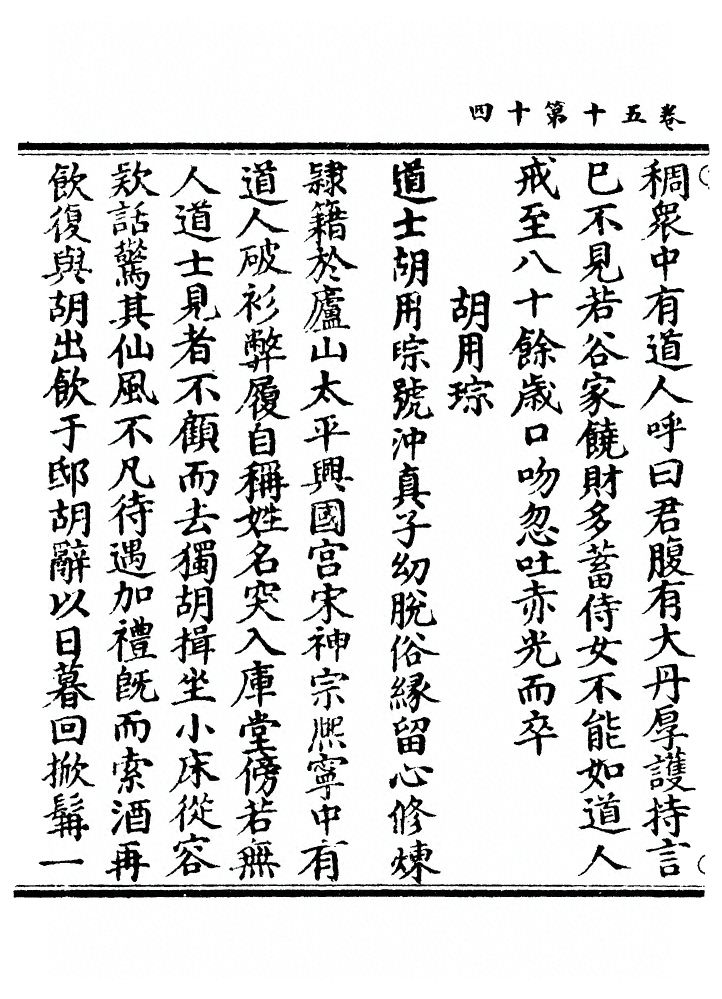 卷五十第十四
稠衆中有道人呼曰君腹有大丹厚護持言
巳不見若谷家饒財多蓄侍女不能如道人
戒至八十餘歳口吻忽吐赤光而卒
胡用琮
道士胡用琮號沖真子幼脫俗緣留心修煉
隷籍於廬山太平興國宫宋神宗熈寧中有
道人破衫弊履自稱姓名突入庫堂傍若無
人道士見者不顧而去獨胡揖坐小床從容
欵話驚其仙風不凡待遇加禮旣而索酒再
飲復與胡出飲于邸胡辭以日暮回掀髯一